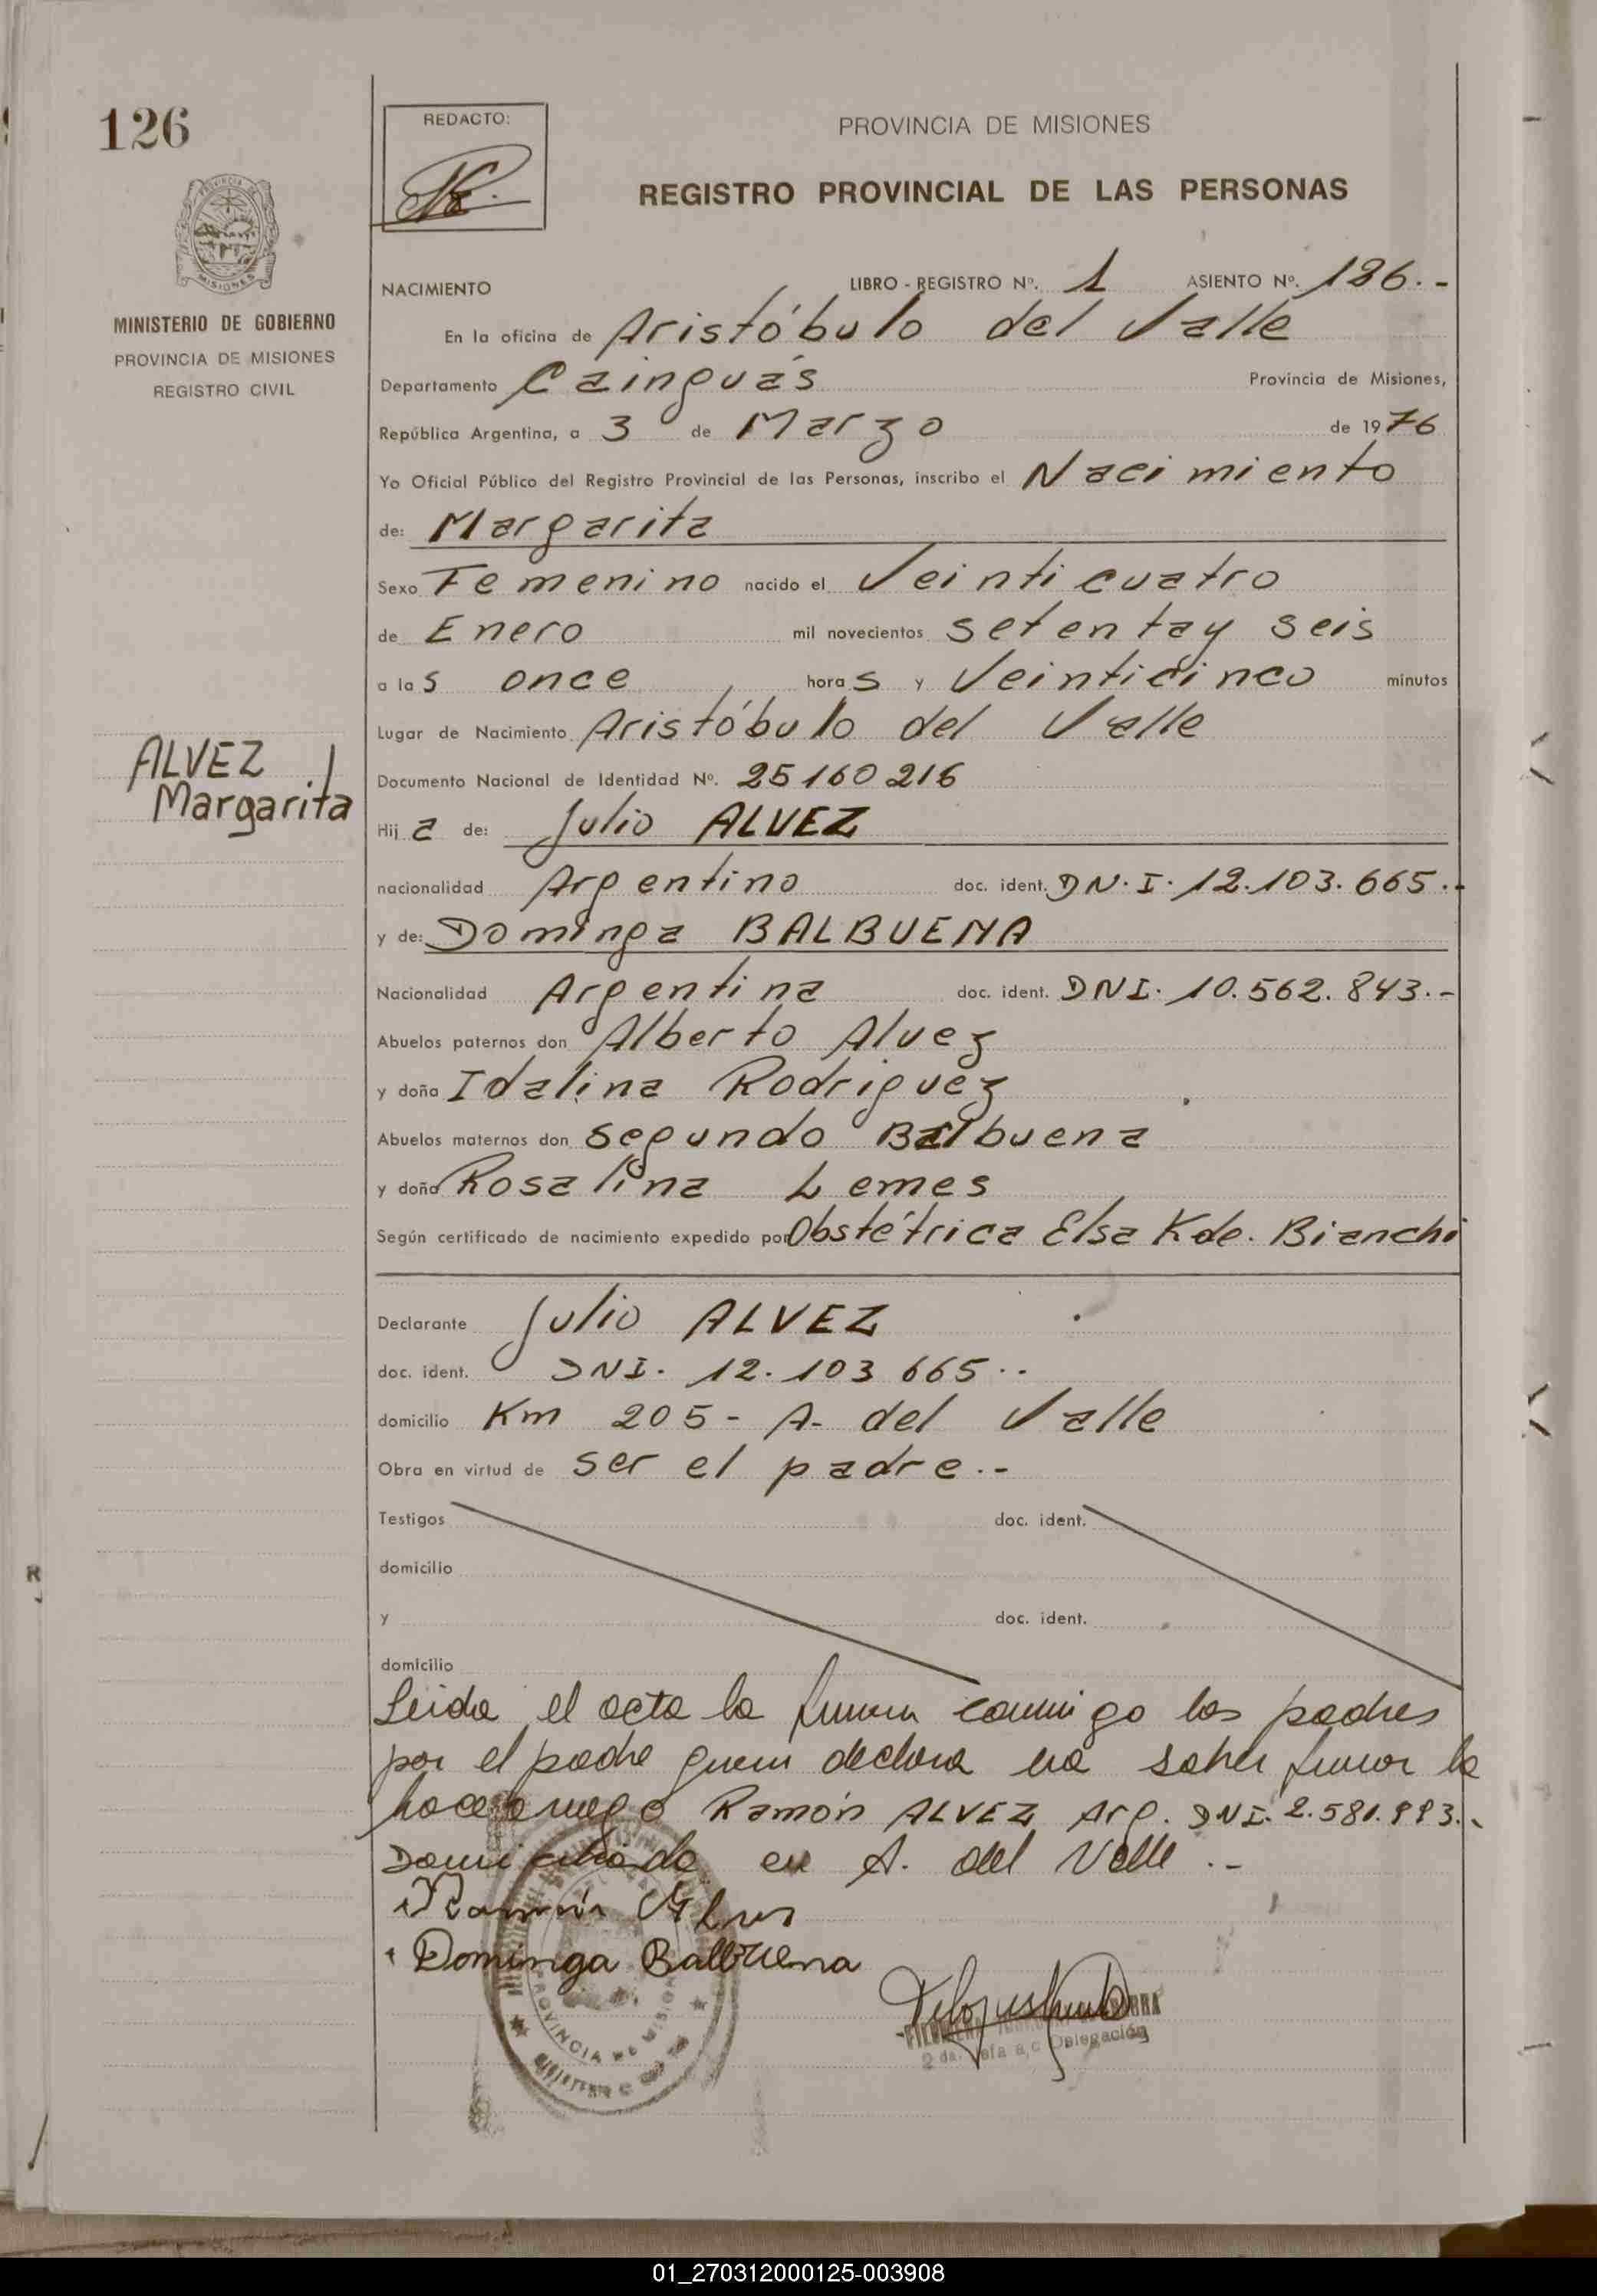 126
REDACTO:
PROVINCIA DE MISIONES
REGISTRO PROVINCIAL DE LAS PERSONAS
MINISTERIO DE GOBIERNO
PROVINCIA DE MISIONES
REGISTRO CIVIL
NACIMIENTO LIBRO - REGISTRO Nº. 1 ASIENTO Nº. 126.-
En la oficina de Aristóbulo del Valle
Departamento Cainguás Provincia de Misiones,
República Argentina, a 3 de Marzo de 1976
Yo Oficial Público del Registro Provincial de las Personas, inscribo el Nacimiento
de: Margarita
Sexo Femenino nacido el Veinticuatro
de Enero mil novecientos setentay seis
a las once horas y Veinticinco minutos
Lugar de Nacimiento Aristóbulo del Valle
ALVEZ
Margarita
Documento Nacional de Identidad Nº. 25160216
Hija de: Julio ALVEZ
nacionalidad Argentino doc. ident. DN.I. 12.103.665.-
y de: Dominga BALBUENA
Nacionalidad Argentina doc. ident. DNI. 10.562.843.-
Abuelos paternos don Alberto Alvez
y doña Idalina Rodriguez
Abuelos maternos don Segundo Balbuena
y doña Rosalina Lemes
Según certificado de nacimiento expedido por Obstétrica Elsa K de. Bianchi
Declarante Julio ALVEZ
doc. ident. DNI. 12.103 665..
domicilio Km 205- A- del Valle
Obra en virtud de ser el padre.-
Testigos doc. ident.
domicilio
y doc. ident.
domicilio
Leida el acta la firman conmigo los padres
por el padre quien declara no saber firmar lo
hace a ruego Ramón ALVEZ Arg. DNI. 2.581.993.-
Domiciliado en A. del Valle.-
Ramón
Dominga Balbuena
PROVINCIA DE MISIONES
2 da. Jefa a/c Delegación
01_270312000125-003908